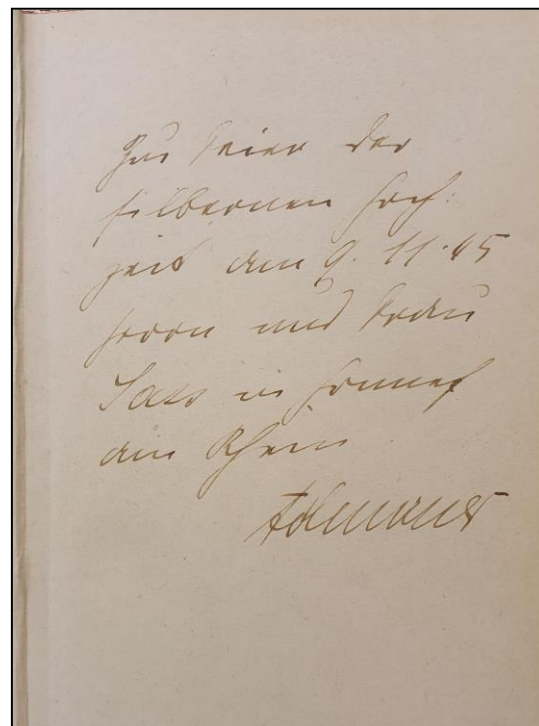 Zur Feier der
silbernen Hoch:
zeit am 9. 11. 45
Herrn und Frau
in Honnef
am Rhein
Adenauer